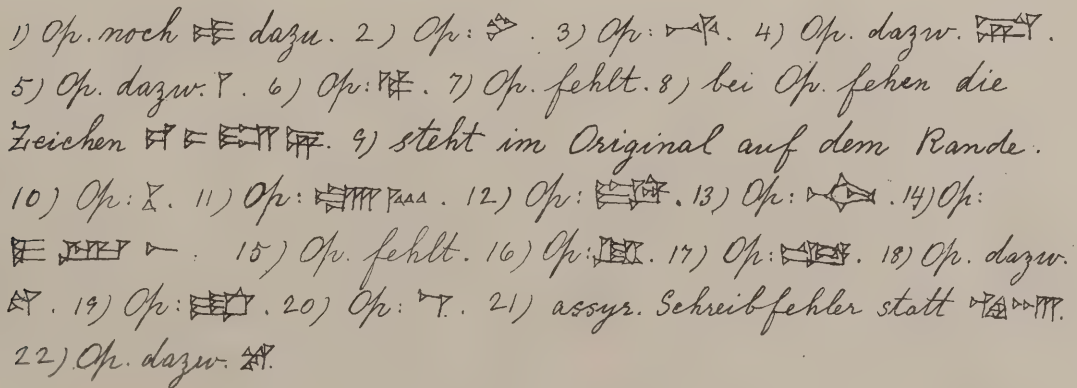 1) Op. noch dazu. 2) Op: . 3) Op: . 4) Op. dazw. .
5) Op. dazw. . 6) Op: . 7) Op. fehlt. 8) bei Op. fehen die
Zeichen . 9) steht im Original auf dem Rande.
10) Op: . 11) Op: . 12) Op: . 13) Op: . 14) Op:
. 15) Op. fehlt. 16) Op: . 17) Op: . 18) Op. dazw.
. 19) Op: . 20) Op: . 21) assyr. Schreibfehler statt .
22) Op. dazw. .